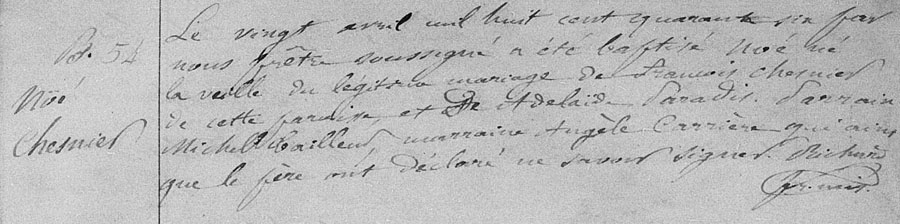 B. 54
Noé
Chesnier
Le vingt avril mil huit cent quarante six par
nous prêtre soussigné a été baptisé Noé né
la veille du légitime mariage de Francois Chesnier
de cette paroisse, et De Adelaide Paradis. Parrain
Michel marraine Angèle Carrière qui ainsi
que le père ont déclaré ne savoir signer. Richard